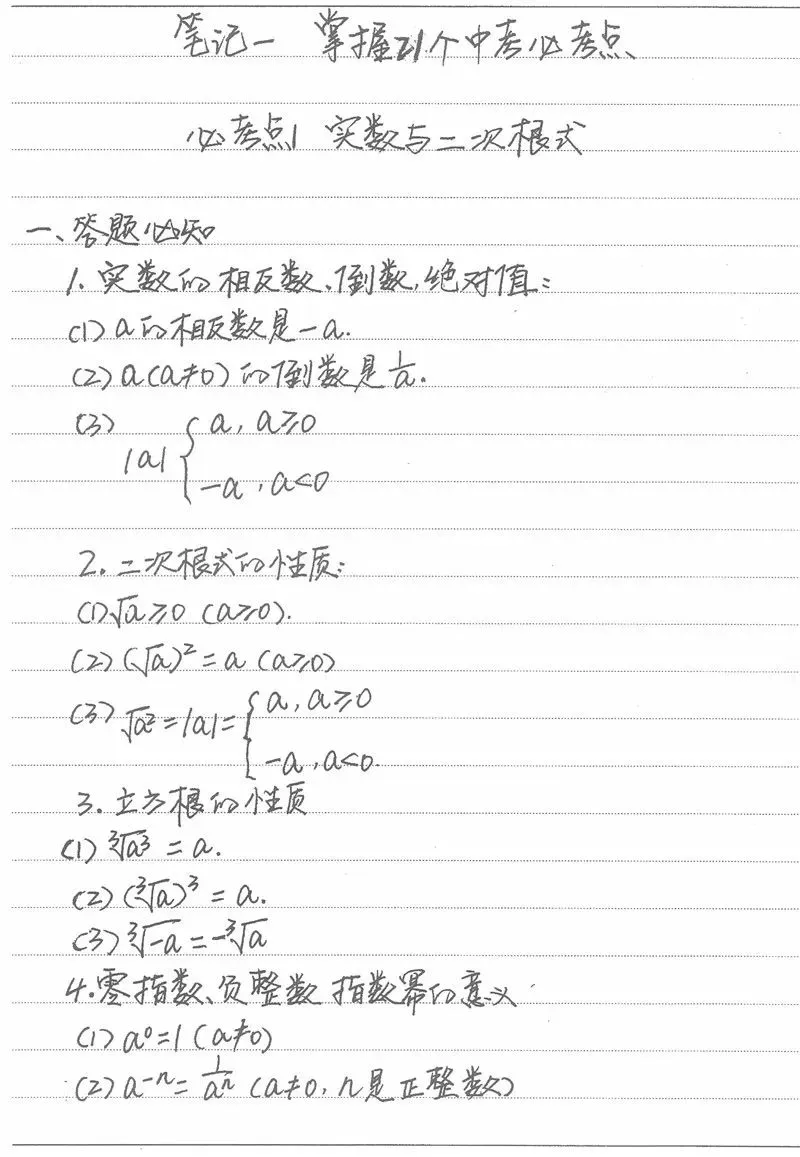 笔记一 掌握21个中考必考点
必考点1 实数与二次根式
一、答题必知
1. 实数的相反数、倒数,绝对值:
(1) a的相反数是-a.
(2) a(a≠0)的倒数是1/a.
(3) |a| { a, a≥0
-a, a<0
2. 二次根式的性质:
(1) √a≥0 (a≥0).
(2) (√a)² = a (a≥0)
(3) √a² = |a| = { a, a≥0
-a, a<0.
3. 立方根的性质
(1) ³√a³ = a.
(2) (³√a)³ = a.
(3) ³√-a = -³√a
4. 零指数、负整数指数幂的意义
(1) a⁰=1 (a≠0)
(2) a⁻ⁿ = 1/aⁿ (a≠0, n是正整数)